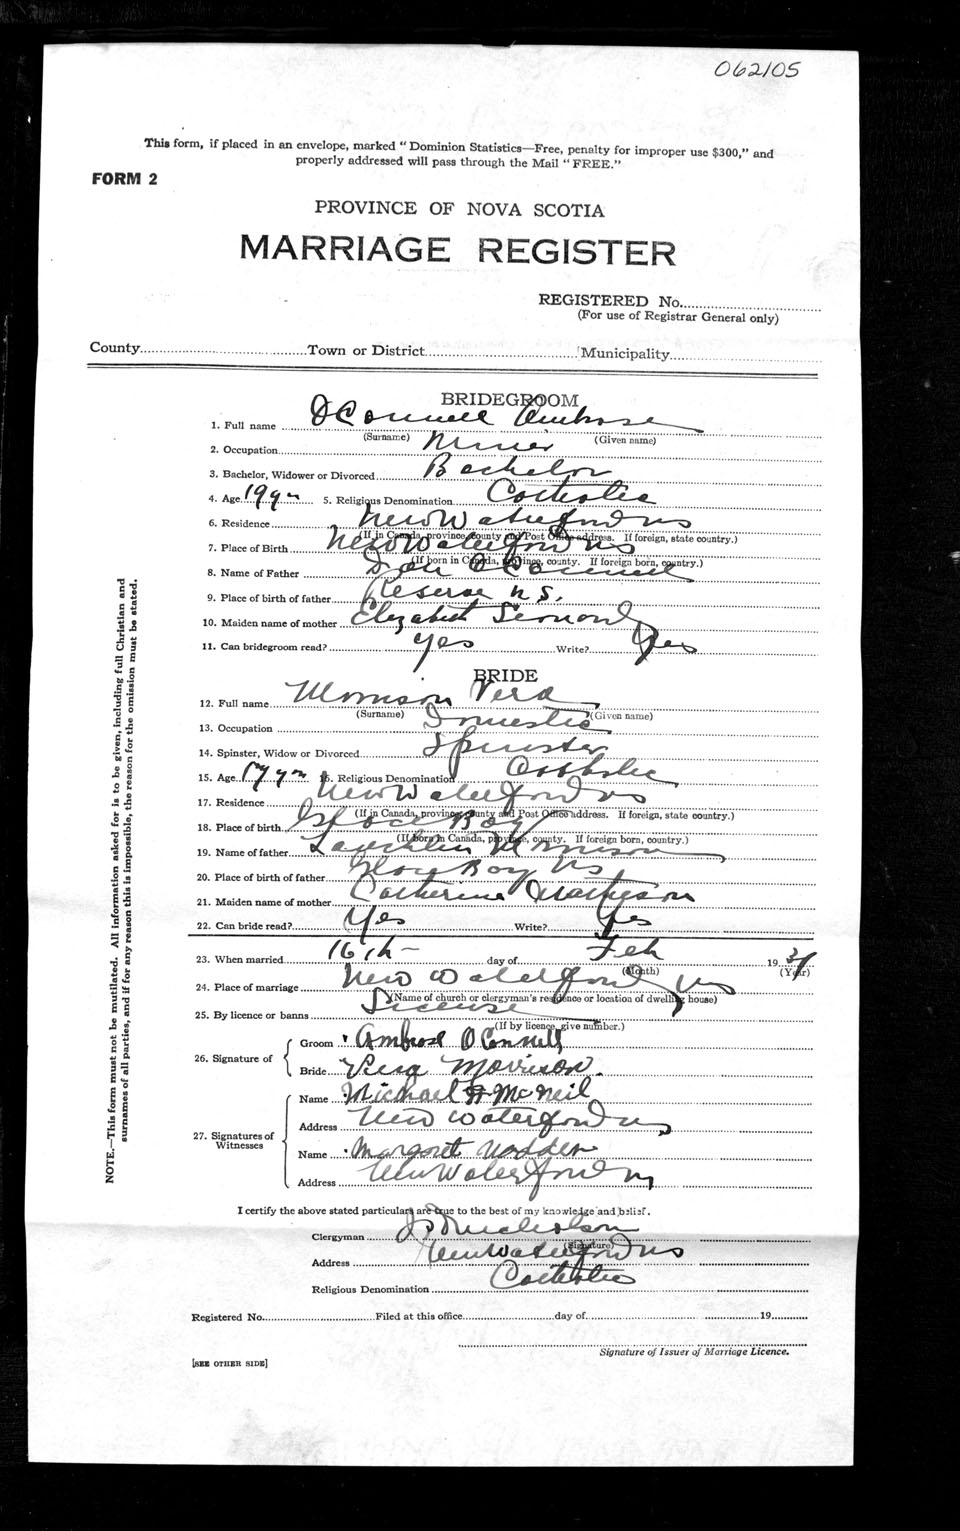 062105
This form, if placed in an envelope, marked "Dominion Statistics—Free, penalty for improper use $300," and
properly addressed will pass through the Mail "FREE."
FORM 2
PROVINCE OF NOVA SCOTIA
MARRIAGE REGISTER
REGISTERED No.
(For use of Registrar General only)
County Town or District Municipality
BRIDEGROOM
1. Full name O'Connell Ambrose
(Surname) (Given name)
2. Occupation Miner
3. Bachelor, Widower or Divorced Bachelor
4. Age 19 yrs 5. Religious Denomination Catholic
6. Residence New Waterford NS
(If in Canada, province, county and Post Office address. If foreign, state country.)
7. Place of Birth New Waterford NS
(If born in Canada, province, county. If foreign born, country.)
8. Name of Father O'Connell
9. Place of birth of father Reserve N S.
10. Maiden name of mother Elizabeth
11. Can bridegroom read? Yes Write? Yes
BRIDE
12. Full name Morrison Vera
(Surname) (Given name)
13. Occupation Domestic
14. Spinster, Widow or Divorced Spinster
15. Age 17 yrs 16. Religious Denomination Catholic
17. Residence New Waterford NS
(If in Canada, province, county and Post Office address. If foreign, state country.)
18. Place of birth Glace Bay
(If born in Canada, province, county. If foreign born, country.)
19. Name of father Lauchlin Morrison
20. Place of birth of father Glace Bay NS
21. Maiden name of mother Catherine Matheson
22. Can bride read? Yes Write? Yes
23. When married 16th day of Feb 19 37
(Month) (Year)
24. Place of marriage New Waterford NS
(Name of church or clergyman's residence or location of dwelling house)
25. By licence or banns License
(If by licence, give number.)
26. Signature of
Groom Ambrose O Connell
Bride Vera Morrison.
27. Signatures of Witnesses
Name Michael McNeil
Address New Waterford NS
Name Margaret Nodden
Address New Waterford NS
I certify the above stated particulars are true to the best of my knowledge and belief.
Clergyman Nicholson
(Signature)
Address New Waterford NS
Religious Denomination Catholic
Registered No. Filed at this office day of 19
Signature of Issuer of Marriage Licence.
[SEE OTHER SIDE]
NOTE.—This form must not be mutilated. All information asked for is to be given, including full Christian and
surnames of all parties, and if for any reason this is impossible, the reason for the omission must be stated.